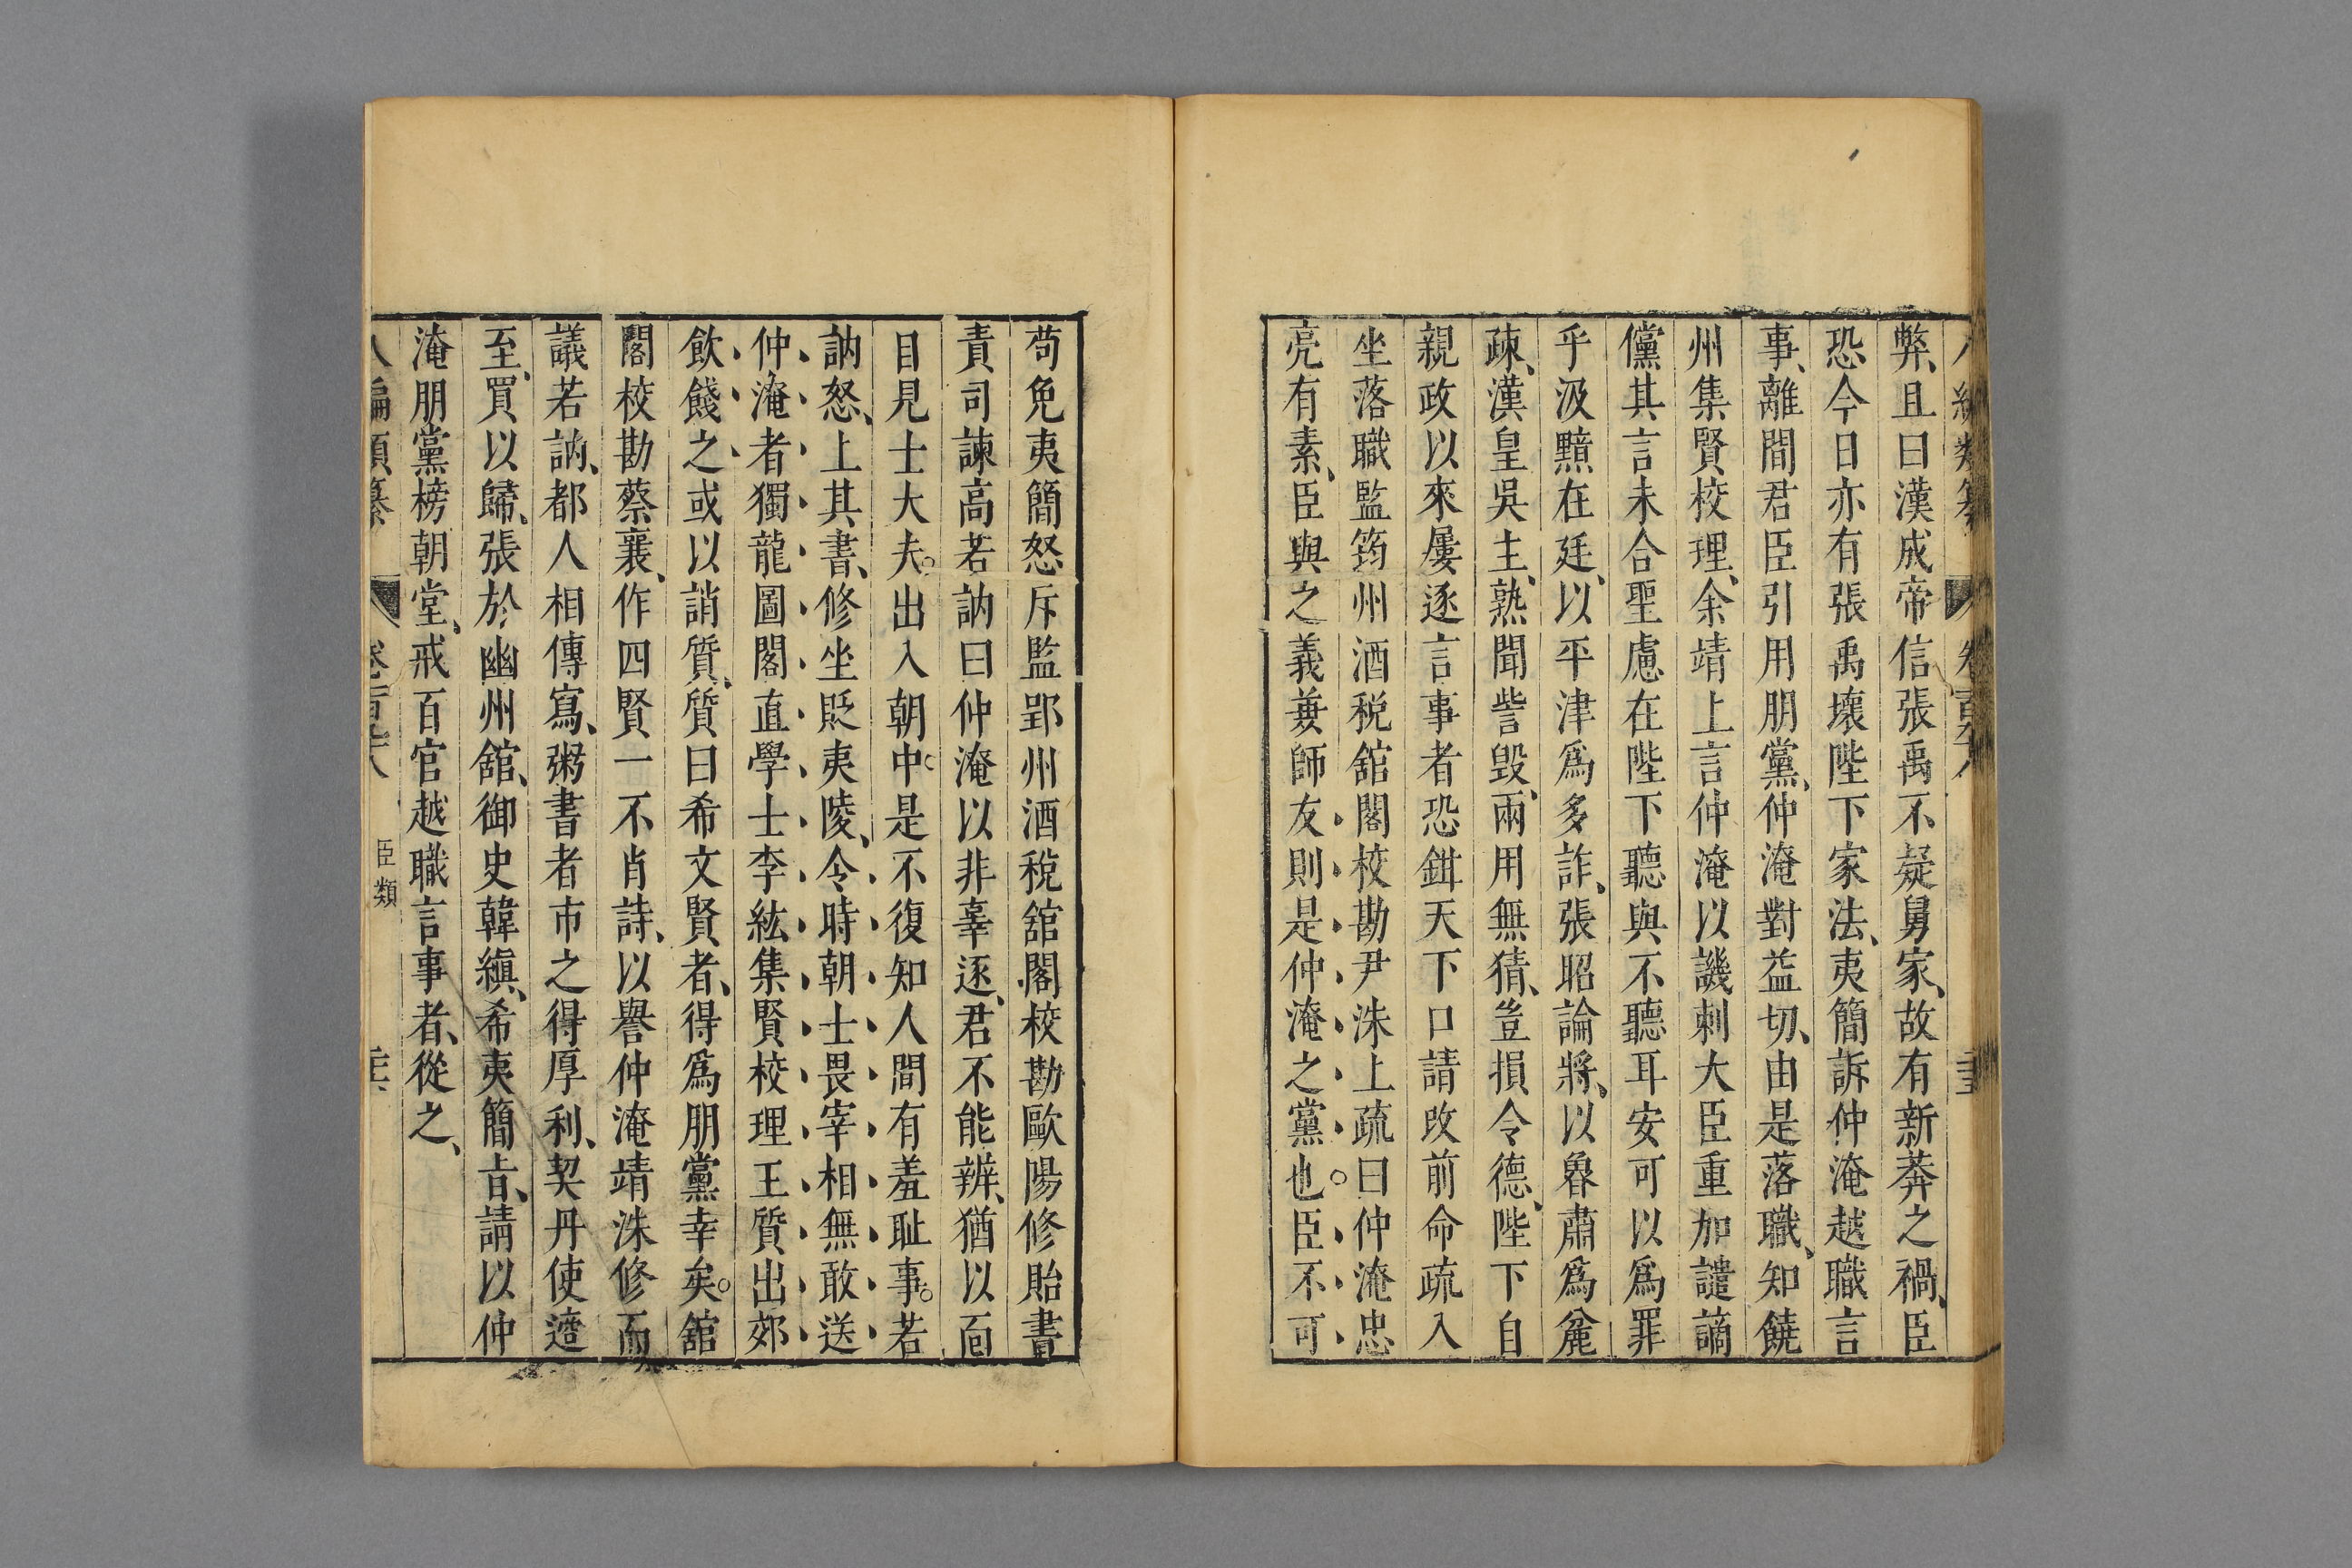 弊、且曰漢成帝信張禹不疑舅家、故有新莽之禍、臣
恐今日亦有張禹壞陛下家法、夷簡訴仲淹越職言
事、離間君臣引用朋黨、仲淹對益切、由是落職、知饒
州集賢校理、余靖上言仲淹以譏刺大臣重加譴謫
儻其言未合聖慮在陛下聽與不聽耳安可以爲罪
乎汲黯在廷、以平津爲多詐、張昭論將、以魯肅爲麄
疎、漢皇吳主、熟聞訾毀、兩用無猜、豈損令德、陛下自
親政以來屢逐言事者恐鉗天下口請改前命疏入
坐落職監筠州酒稅舘閣校勘尹洙上疏曰仲淹忠
亮有素、臣與之義兼師友則是仲淹之黨也○臣不可
苟免夷簡怒斥監郢州酒稅舘閣校勘歐陽修貽書
責司諫高若訥曰仲淹以非辜逐、君不能辨、猶以面
目見士大夫○出入朝中○是不復知人間有羞耻事○若
訥怒、上其書、修坐貶夷陵、令時朝士畏宰相無敢送
仲淹者獨龍圖閣直學士李紘集賢校理王質出郊
飲餞之或以誚質、質曰希文賢者、得爲朋黨幸矣○舘
閣校勘蔡襄、作四賢一不肖詩、以譽仲淹靖洙修而
議若訥、都人相傳寫、粥書者市之得厚利、契丹使適
至、買以歸、張於幽州舘、御史韓縝、希夷簡旨、請以仲
淹朋黨榜朝堂、戒百官越職言事者、從之、
臣類